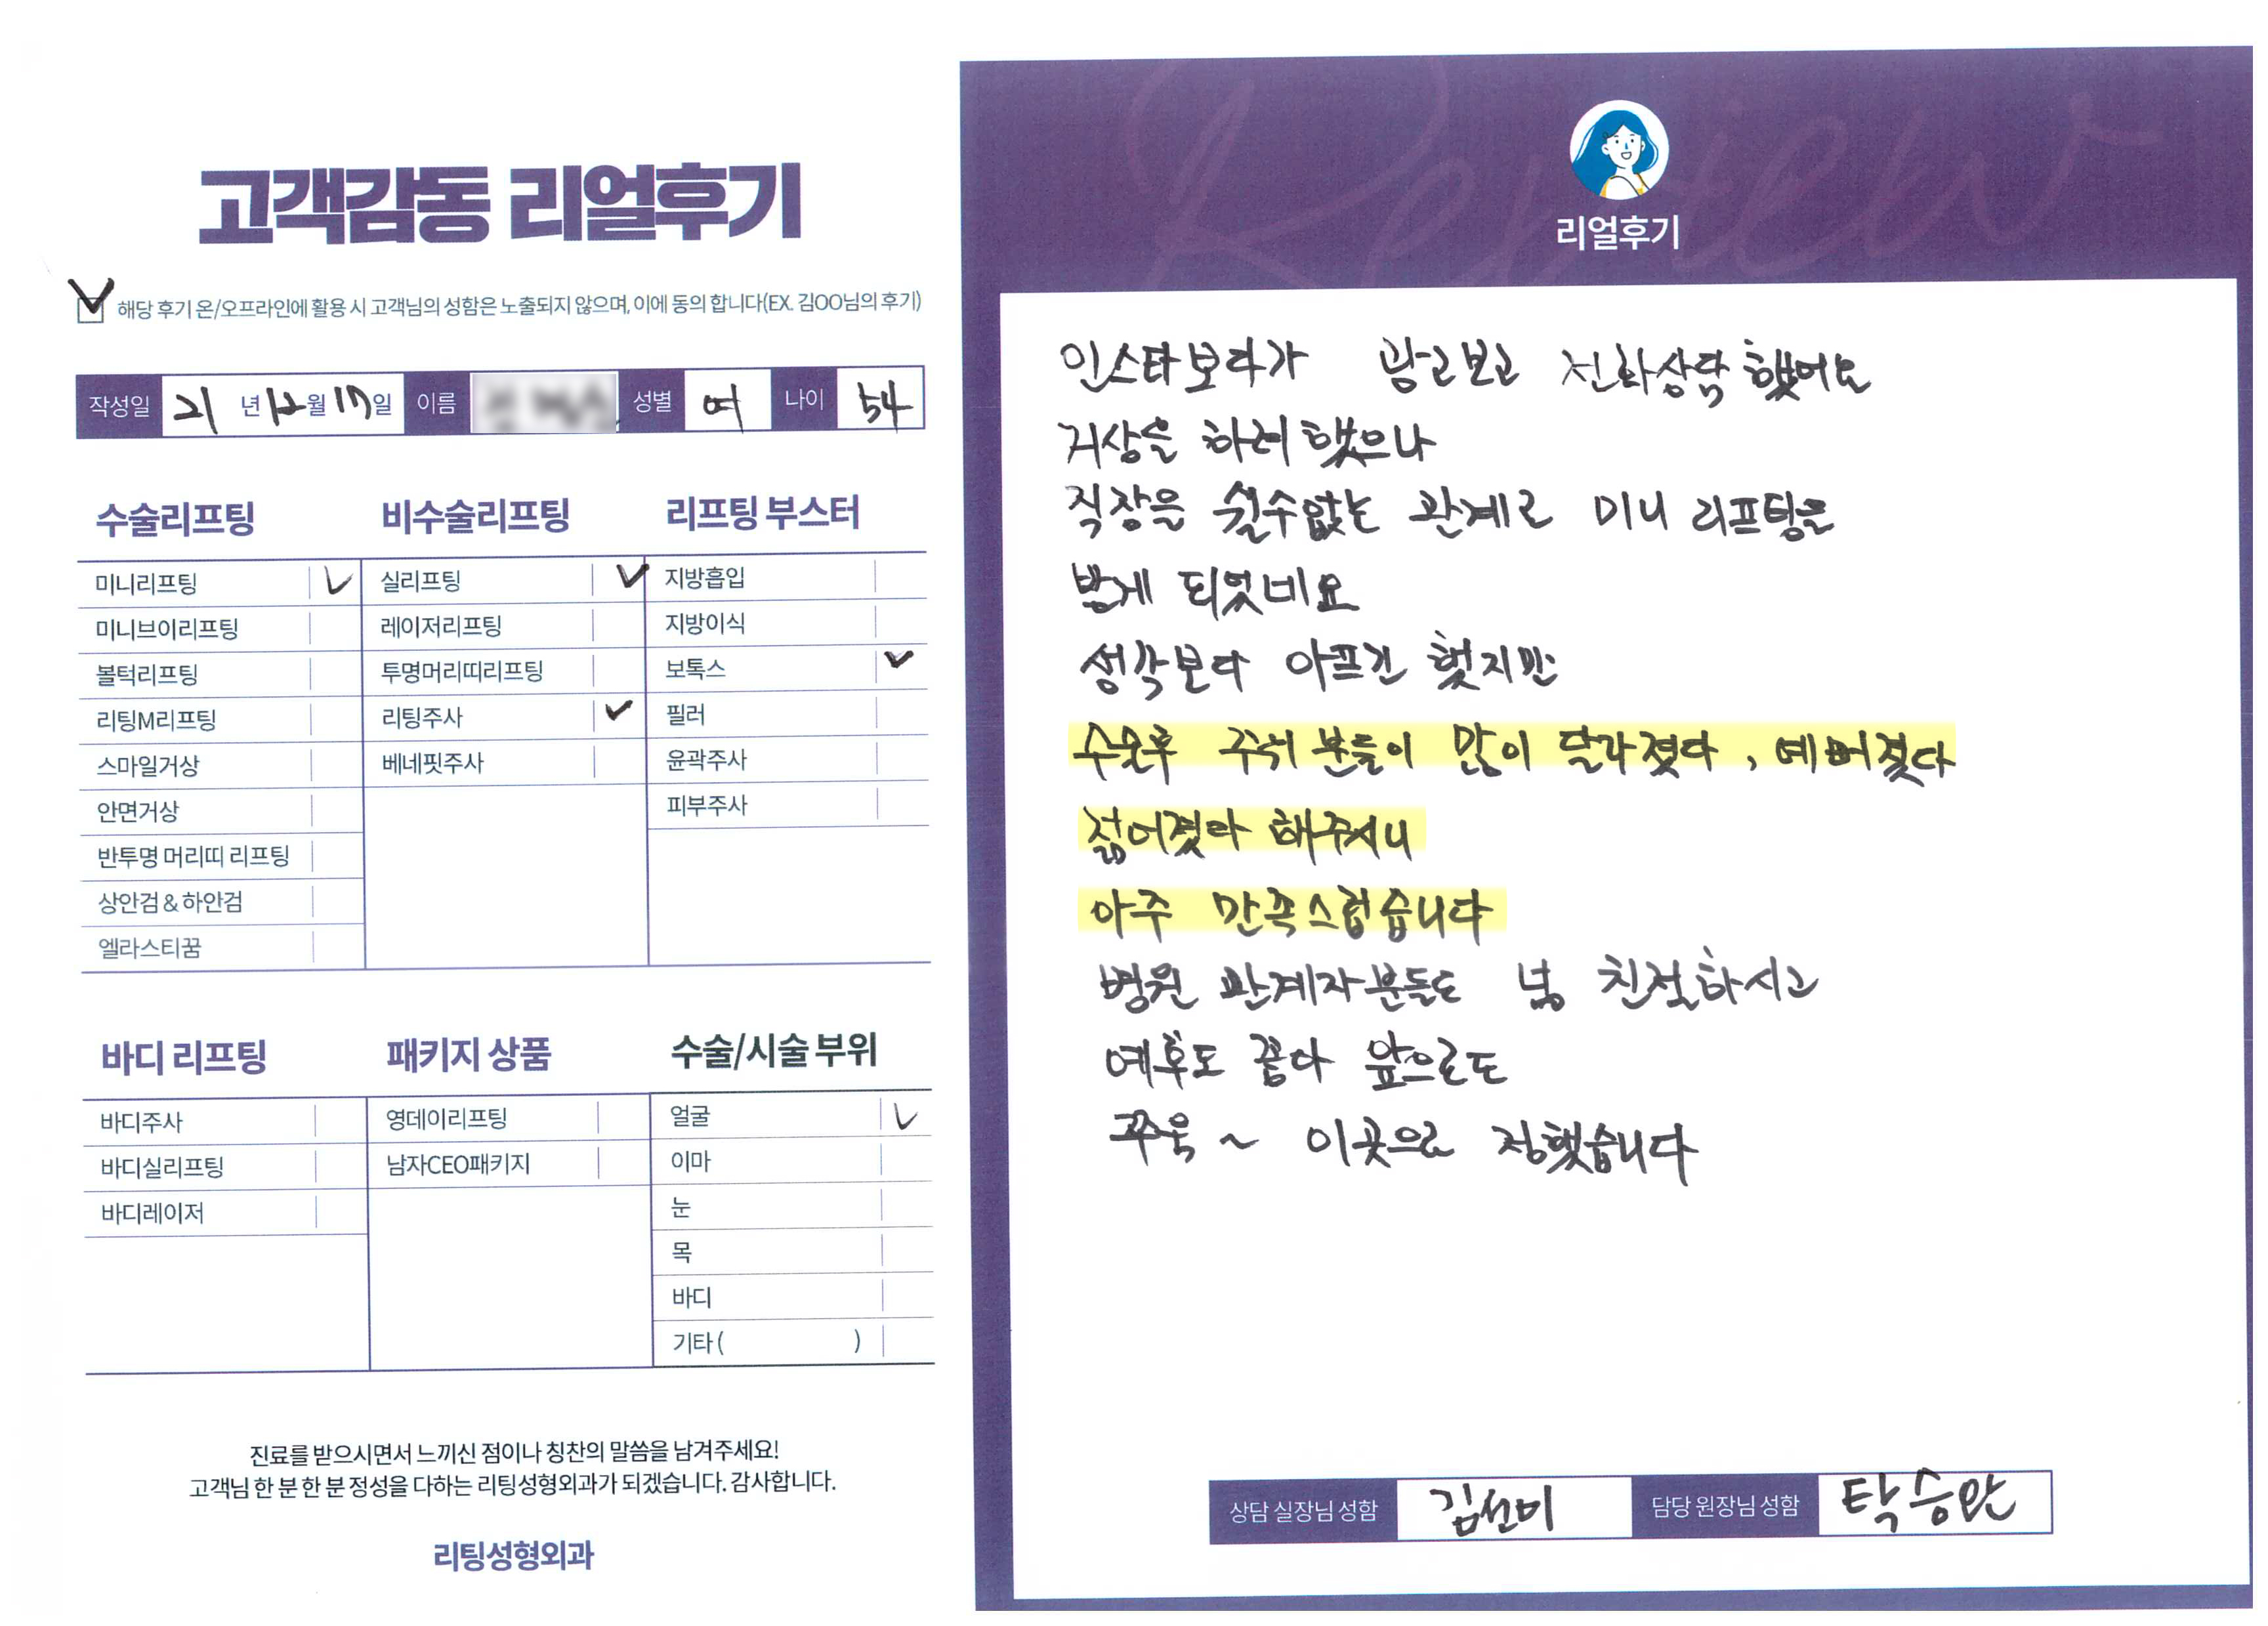 고객감동 리얼후기
해당 후기 온/오프라인에 활용 시 고객님의 성함은 노출되지 않으며, 이에 동의 합니다(EX. 김OO님의 후기)
작성일 21 년 12 월 17 일 이름 성별 여 나이 54
수술리프팅
미니리프팅
미니브이리프팅
볼턱리프팅
리팅M리프팅
스마일거상
안면거상
반투명 머리띠 리프팅
상안검 & 하안검
엘라스티꿈
비수술리프팅
실리프팅
레이저리프팅
투명머리띠리프팅
리팅주사
베네핏주사
리프팅 부스터
지방흡입
지방이식
보톡스
필러
윤곽주사
피부주사
바디 리프팅
바디주사
바디실리프팅
바디레이저
패키지 상품
영데이리프팅
남자CEO패키지
수술/시술 부위
얼굴
이마
눈
목
바디
기타 ( )
진료를 받으시면서 느끼신 점이나 칭찬의 말씀을 남겨주세요!
고객님 한 분 한 분 정성을 다하는 리팅성형외과가 되겠습니다. 감사합니다.
리팅성형외과
Review
리얼후기
인스타보다가 광고보고 전화상담 했어요
거상을 하려 했으나
직장을 쉴수없는 관계로 미니 리프팅을
받게 되었네요
생각보다 아프긴 했지만
수술후 주위 분들이 많이 달라졌다, 예뻐졌다
젊어졌다 해주시니
아주 만족스럽습니다
병원 관계자분들도 넘 친절하시고
예후도 좋다 앞으로도
쭈욱 ~ 이곳으로 정했습니다
상담 실장님 성함 김선미 담당 원장님 성함 탁승안